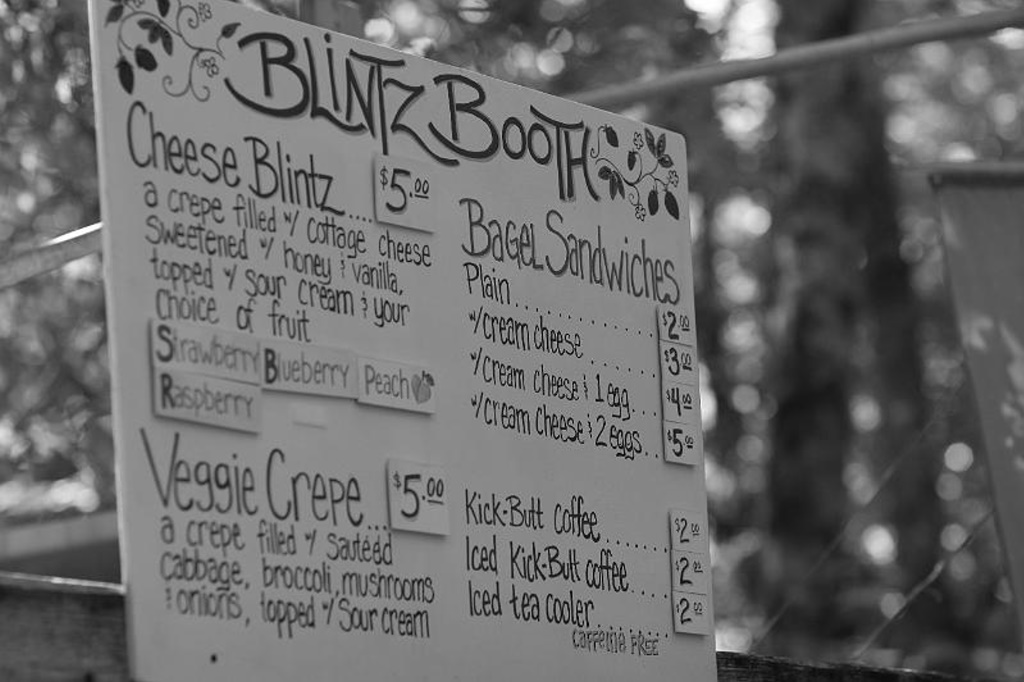 BLiNTZ BOOTH
Cheese Blintz.... $5.00
a crepe filled w/ cottage cheese
sweetened w/ honey & vanilla,
topped w/ sour cream & your
choice of fruit
Strawberry Blueberry Peach
Raspberry
Veggie Crepe... $5.00
a crepe filled w/ sautéed
cabbage, broccoli, mushrooms
& onions, topped w/ sour cream
Bagel Sandwiches
Plain.................... $2.00
w/cream cheese ........ $3.00
w/cream cheese & 1 egg... $4.00
w/cream cheese & 2 eggs... $5.00
Kick-Butt coffee........ $2.00
Iced Kick-Butt coffee.... $2.00
Iced tea cooler........ $2.00
caffeine FREE